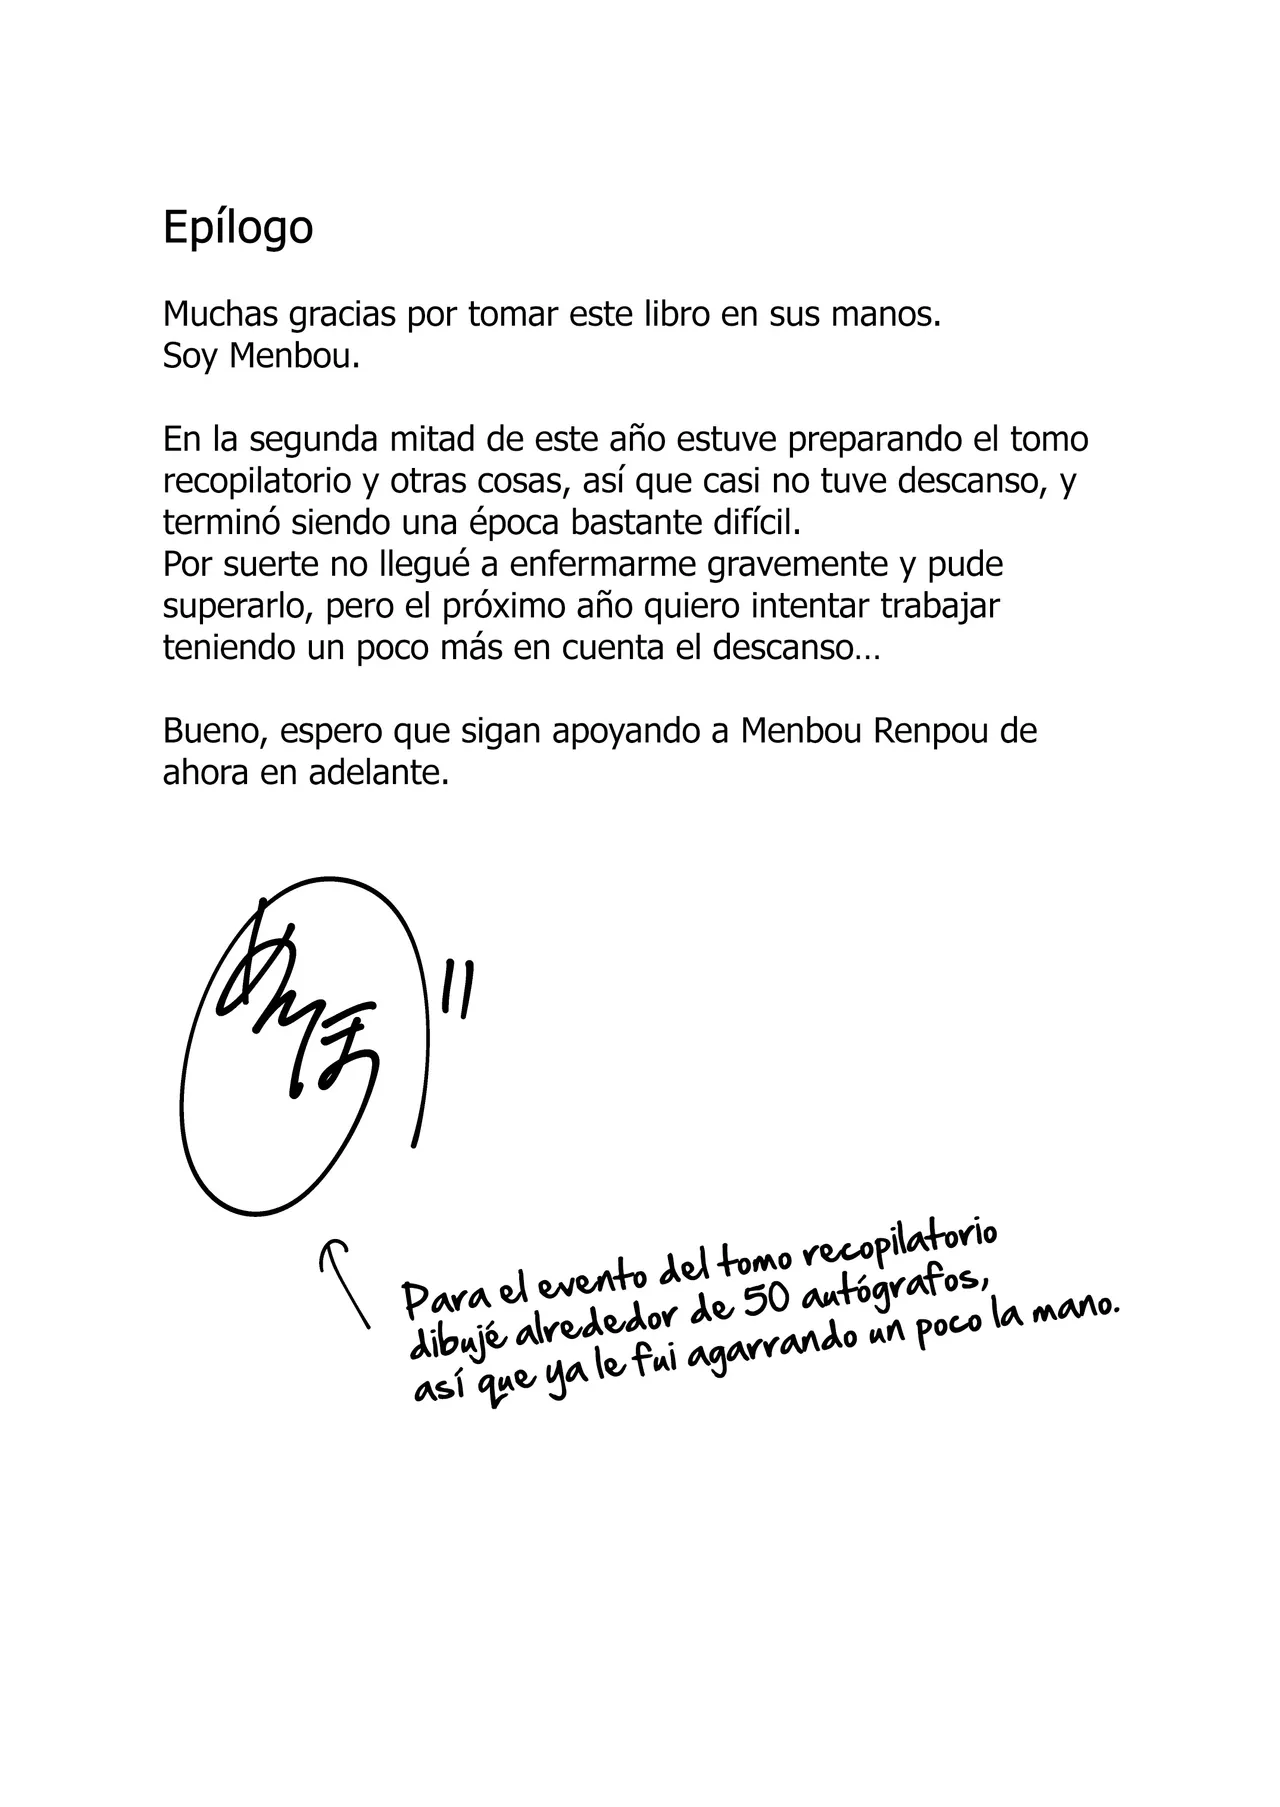 Epílogo
Muchas gracias por tomar este libro en sus manos.
Soy Menbou.
En la segunda mitad de este año estuve preparando el tomo
recopilatorio y otras cosas, así que casi no tuve descanso, y
terminó siendo una época bastante difícil.
Por suerte no llegué a enfermarme gravemente y pude
superarlo, pero el próximo año quiero intentar trabajar
teniendo un poco más en cuenta el descanso...
Bueno, espero que sigan apoyando a Menbou Renpou de
ahora en adelante.
Para el evento del tomo recopilatorio
dibujé alrededor de 50 autógrafos,
así que ya le fui agarrando un poco la mano.